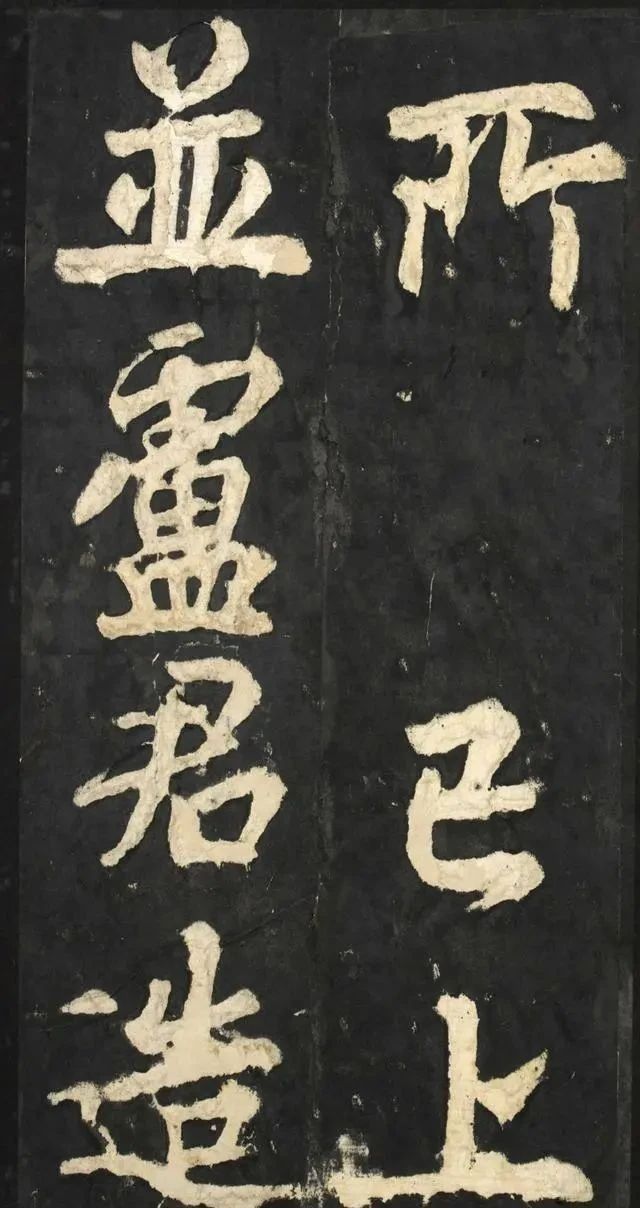 所已上
並盧君造